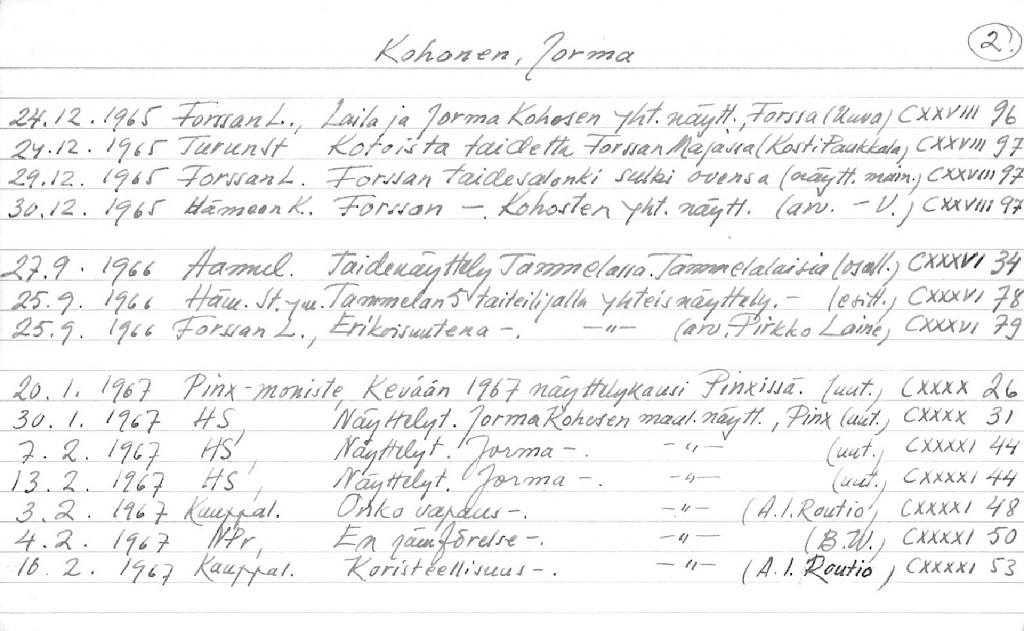 2.
Kohonen, Jorma
24.12. 1965 Forssan L., Laila ja Jorma Kohosen yht. näytt., Forssa (kuva) CXXVIII 96
24.12. 1965 TurunSt Kotoista taidetta Forssan Majassa (Kosti Paukkala) CXXVIII 97
29.12. 1965 Forssan L. Forssan taidesalonki sulki ovensa (näytt. main.) CXXVIII 97
30.12. 1965 Hämeen K. Forssan -. Kohosten yht. näytt. (arv. - V.) CXXVIII 97
27.9. 1966 Aamul. Taidenäyttely Tammelassa. Tammelalaisia (osall.) CXXXVI 34
25.9. 1966 Häm. St. ym. Tammelan 5 taiteilijalla yhteisnäyttely. - (esitt.) CXXXVI 78
25.9. 1966 Forssan L., Erikoisuutena -. -"- (arv. Pirkko Laine) CXXXVI 79
20.1. 1967 Pinx-moniste, Kevään 1967 näyttelykausi Pinxissä. (uut.) CXXXX 26
30.1. 1967 HS, Näyttelyt. Jorma Kohosen maal. näytt., Pinx (uut.) CXXXX 31
7.2. 1967 HS, Näyttelyt. Jorma -. -"- (uut.) CXXXXI 44
13.2. 1967 HS, Näyttelyt. Jorma -. -"- (uut.) CXXXXI 44
3.2. 1967 Kauppal. Onko vapaus -. -"- (A.I. Routio) CXXXXI 48
4.2. 1967 NPr, En jämförelse -. -"- (B.W.) CXXXXI 50
10.2. 1967 Kauppal. Koristeellisuus -. -"- (A.I. Routio) CXXXXI 53